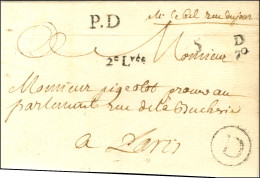 P.D
Mr le Bel rue du jour
Monsieur
S
D
/70
2e Lvée
Monsieur pigeolot procureur au
parlement rue de la Bucherie
a Paris
D